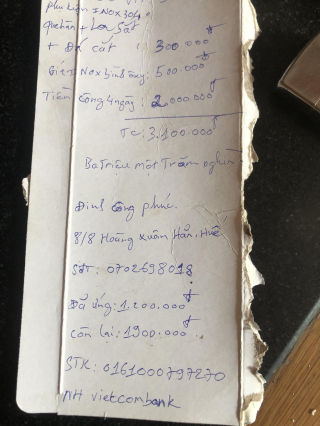 Phụ kiện INOX304
que hàn + Lơ sắt
+ Đá cắt : 300.000đ
Giá INox bình ôxy: 500.000đ
Tiền công 4 ngày: 2.000.000đ
TC: 3.100.000đ
Ba triệu một Trăm nghìn
Đinh Công phúc.
8/8 Hoàng Xuân Hãn. Huế
SĐT: 0702698018
Đã ứng: 1.200.000đ
còn lại: 1900.000đ
STK: 0161000797270
NH vietcombank